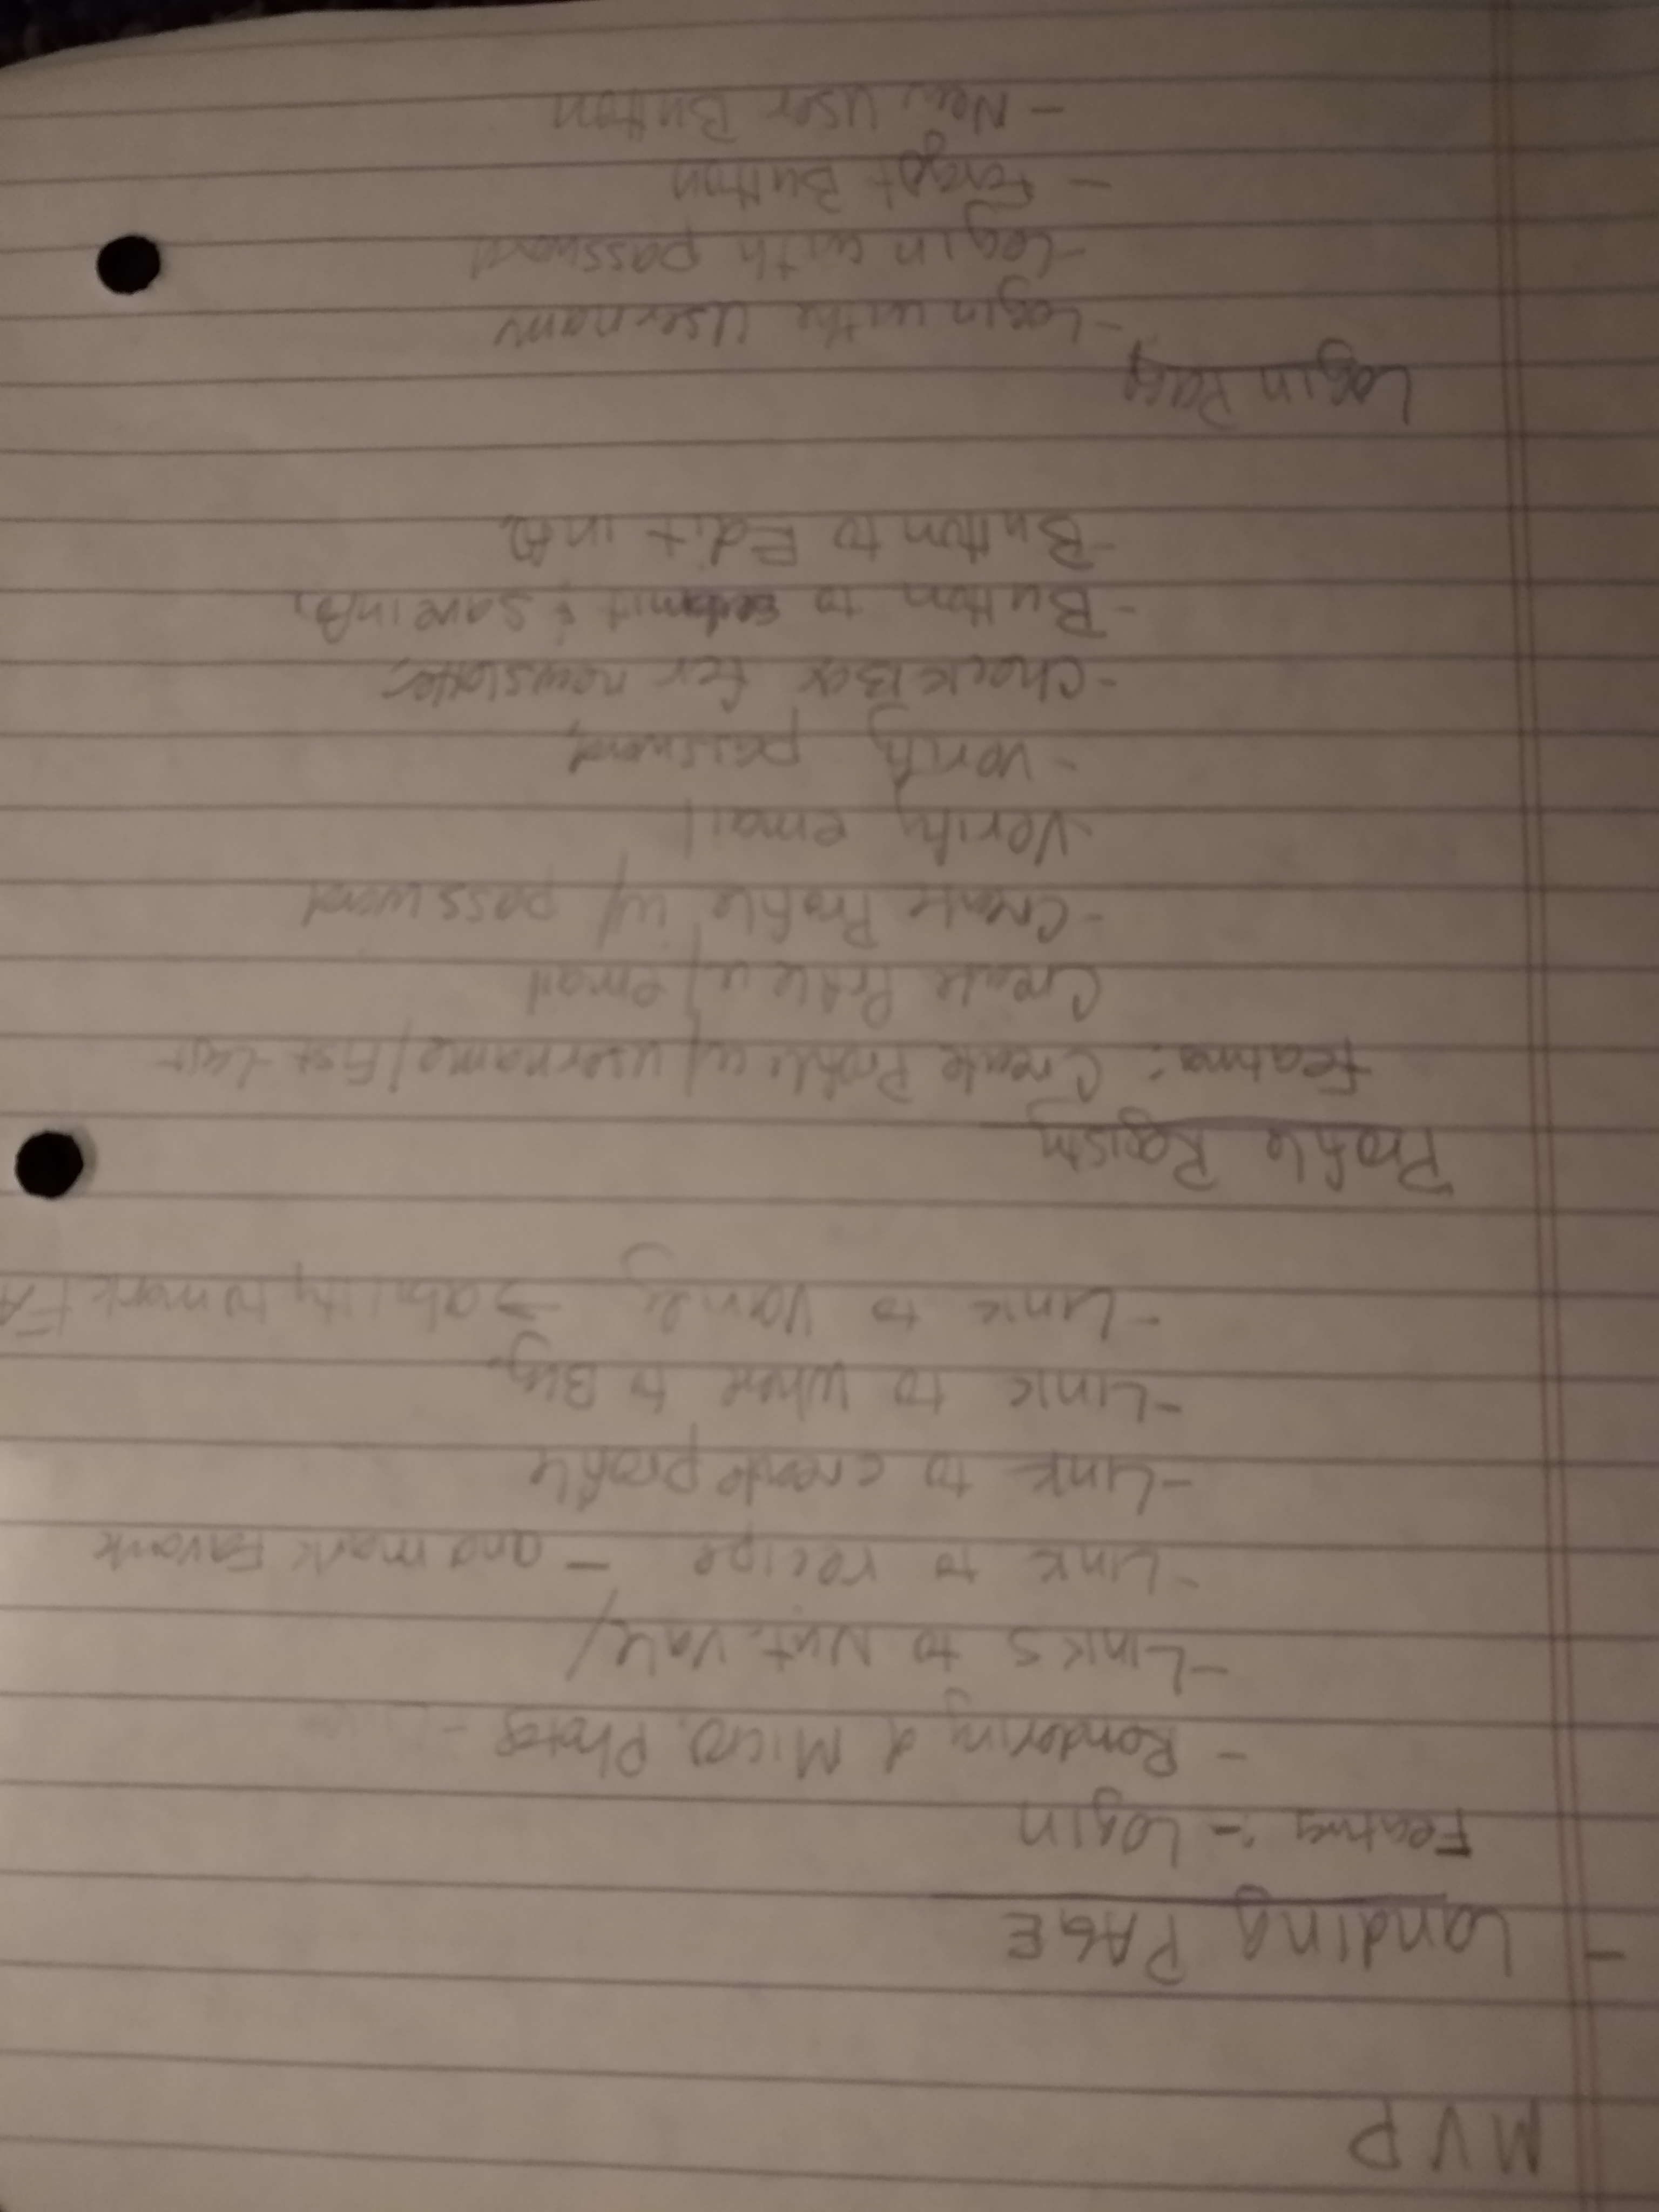 MVP
- Landing PAGE
Feature: - Login
- Rendering of Micro. Photos -
- Links to Nut. Value/
- Link to recipe - and mark Favorite
- Link to create profile
- Link to where to Buy.
- Link to → ability to mark FA
Profile Registry
Feature: Create Profile w/ username/First-Last
Create Profile w/ email
- Create Profile w/ password
- Verify email
- Verify password
- CheckBox for newsletter
- Button to submit & save info.
- Button to Edit info.
Login Page
- Login with Username
- Login with password
- Forgot Button
- New User Button